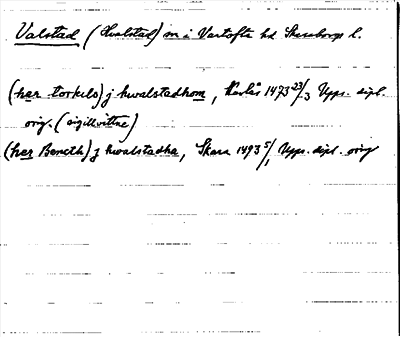 Valstad (Hvalstad) sn i Vartofta hd Skaraborgs l.
(her torkils) j hwalstadhom, Kavlås 1473 23/3 Upps. dipl.
orig. (sigillvittne)
(her Bencth) j hwalstadha, Skara 1493 5/1 Upps. dipl. orig